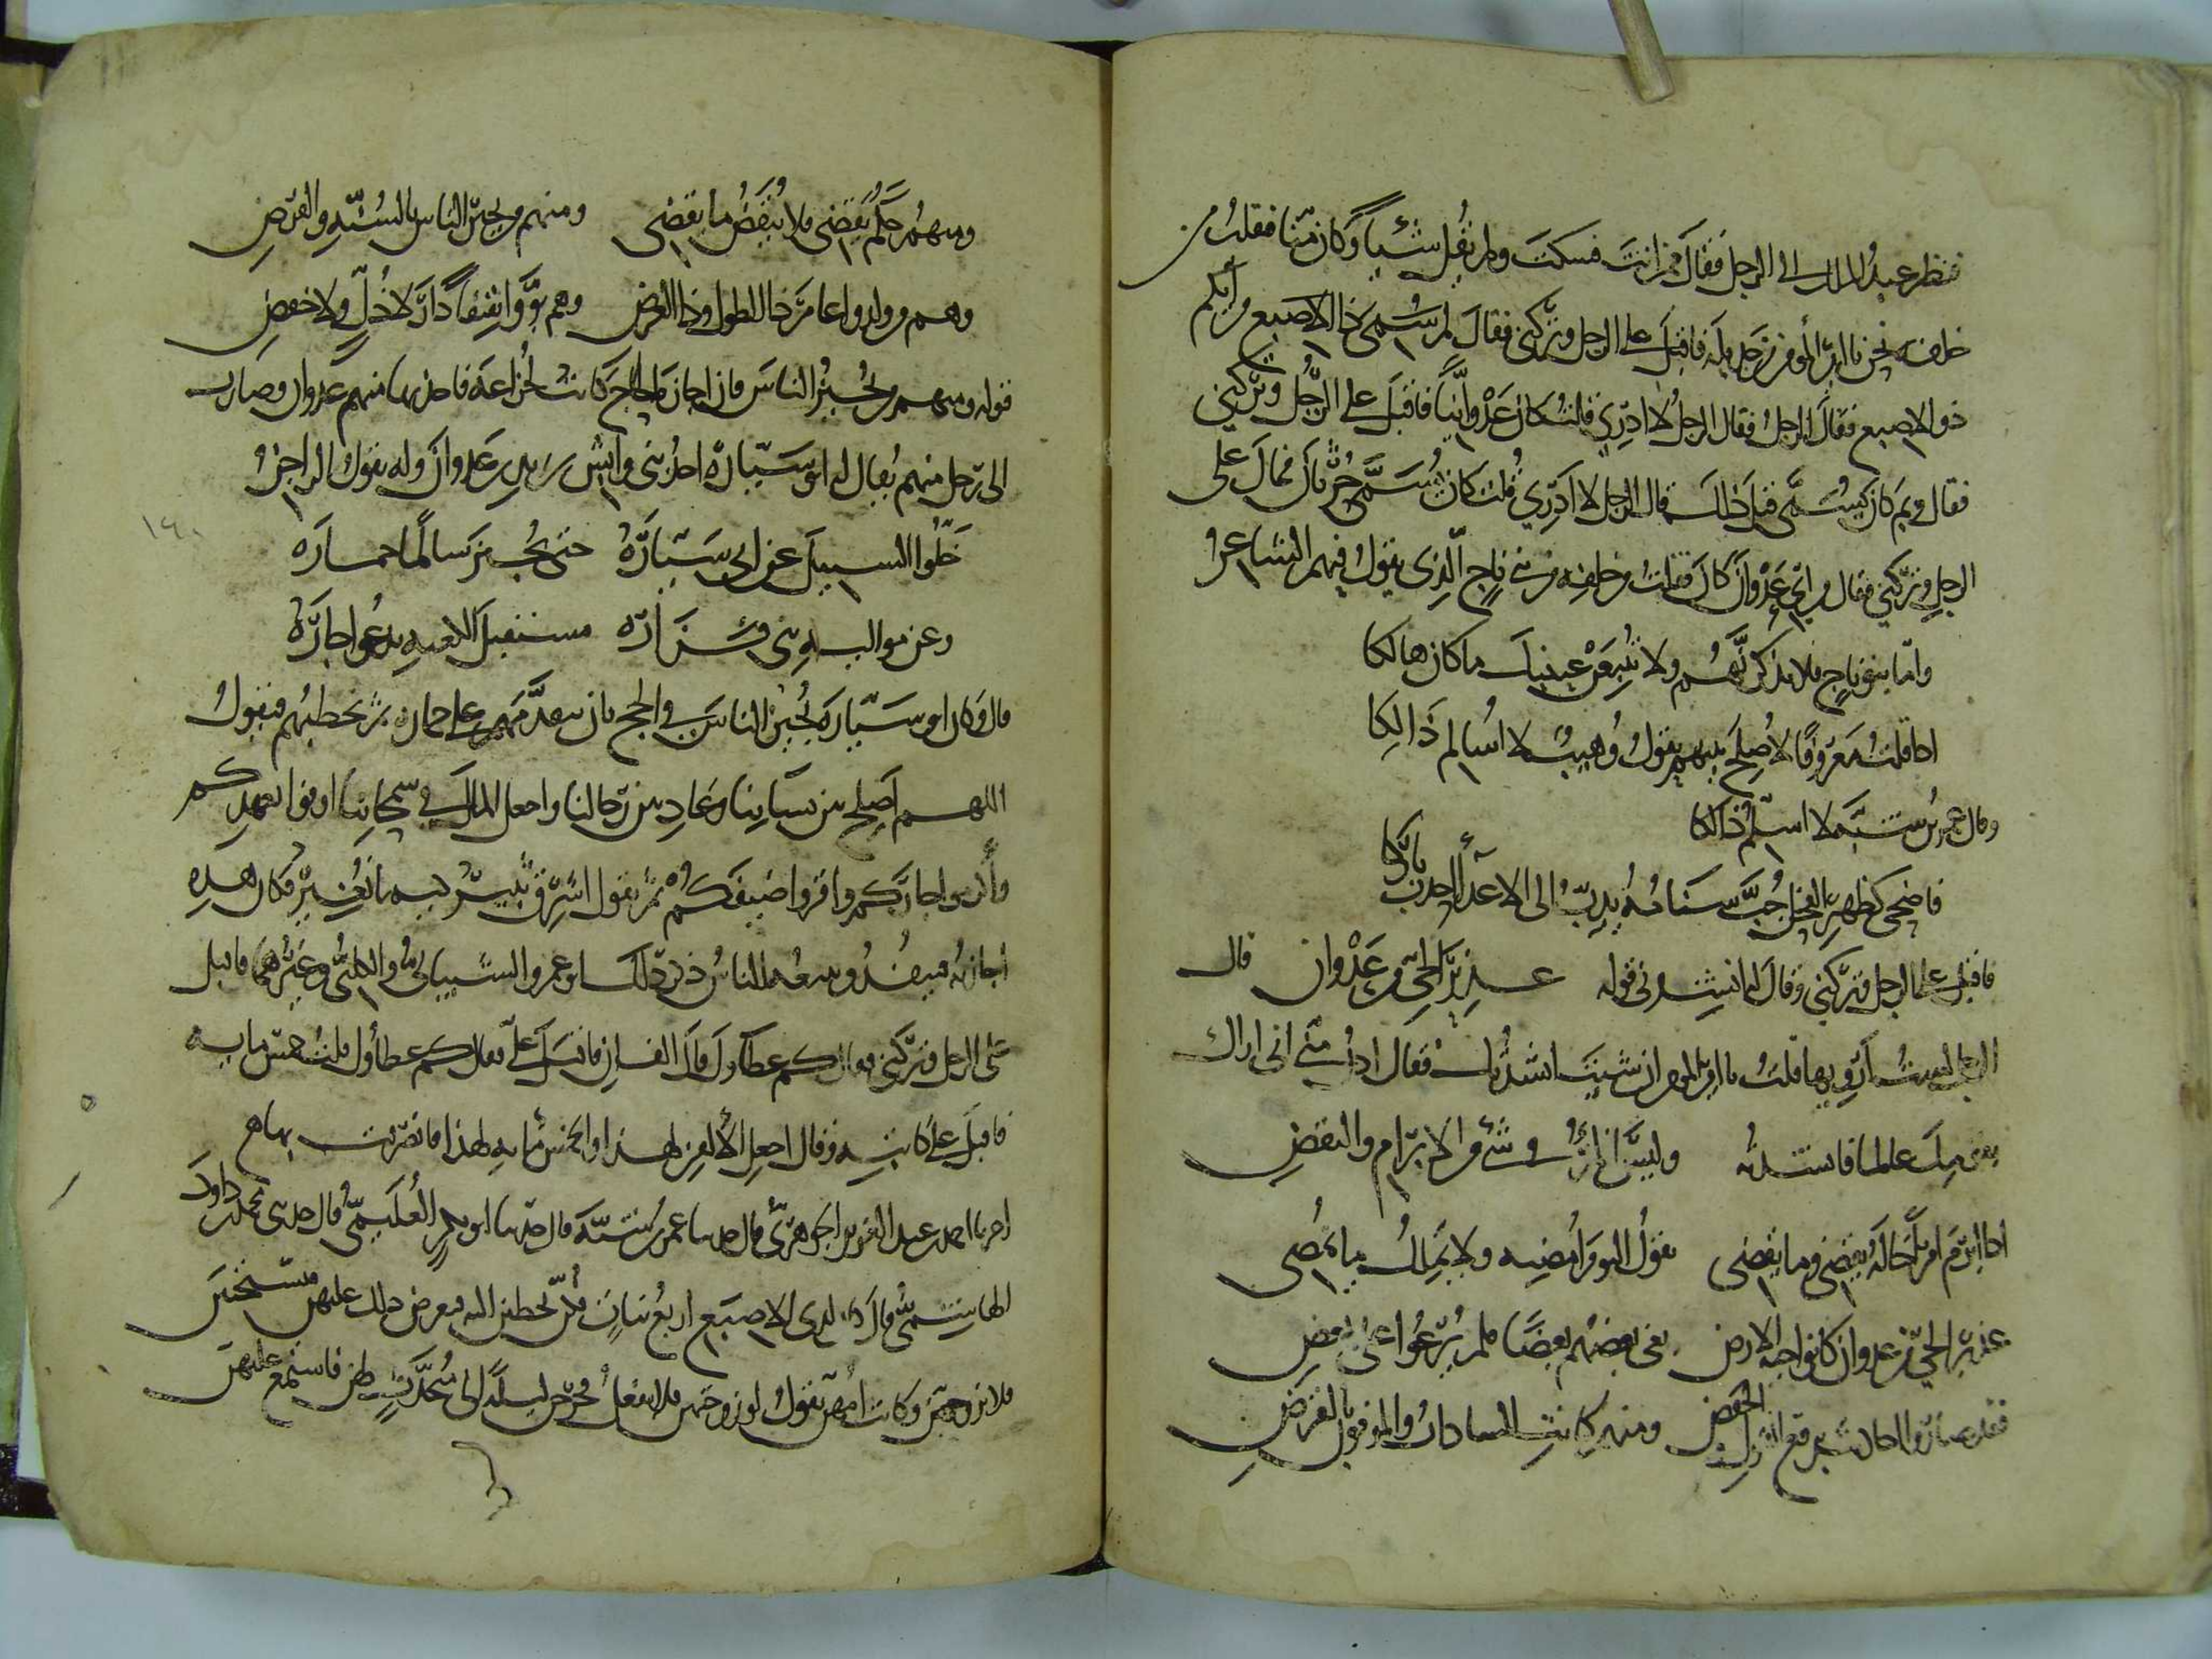 فنظر عبد الملك الى الرجل فقال ممن انت فسكت ولم يقل شيئا وكان منا فقلت من
خلفه نحن يا امير المومنين من جديلة فاقبل على الرجل وتركني فقال لم سمى ذا الاصبع من ايكم
ذو الاصبع فقال الرجل لا ادري قلت كان عدوانيا فاقبل على الرجل وتركني
فقال وبم كان يسمى قبل ذلك قال الرجل لا ادري قلت كان يسمى حرثان فمال على
الرجل وتركني فقال من اي عدوان كان فقلت من خلفه من بني ناج الذي يقول فيهم الشاعر
واما بنو ناج فلا تذكرنهم ولا تتبعن عينيك ما كان هالكا
اذا قلت معروفا لاصلح بينهم يقول وهيب لا اسالم ذالكا
وقال عمر بن شبة لا اسلم ذالكا
فاضحى كظهر الفحل جب سنامه يدب الى الاعدا احدب باركا
فاقبل على الرجل وتركني وقال انشدني قوله عذير الحي من عدوان قال
الرجل لست ارويها قلت يا امير المومنين ان شئت انشدتك فقال ادن مني اني اراك
وليس المرء في شي من الابرام والنقض
اذا ابرم امرا خاله يقضى وما يقضى يقول اليوم امضيه ولا يملك ما يمضى
عذير الحي من عدوان كانوا حية الارض بغى بعضهم بعضا فلم يرعوا على بعض
فقد صاروا احاديث برفع القول والخفض ومنهم كانت السادات والموفون بالقرض
ومنهم حكم يقضى فلا ينقض ما يقضى ومنهم من يجيز الناس بالسنة والفرض
وهم من ولدوا عامر ذا الطول وذا العرض وهم بووا ثقيفا دار لا ذل ولا خفض
قوله ومنهم من يجيز الناس فان اجازة الحاج كانت لخزاعة فاخذتها منهم عدوان وصارت
الى رجل منهم يقال له ابو سيارة احد بني وابش بن زيد بن عدوان وله يقول الراجز
خلوا السبيل عن ابي سياره حتى يجيز سالما حماره
وعن مواليه بني فزاره مستقبل الكعبة يدعو جاره
قال وكان ابو سيارة يجيز الناس في الحج بان يتقدمهم على حمار ثم يخطبهم فيقول
اللهم اصلح بين نسائنا وعاد بين رعائنا واجعل المال في سمحائنا اوفوا بعهدكم
واكرموا جاركم واقروا ضيفكم ثم يقول اشرق ثبير كيما نغير فكان هذه
اجازته ثم ينفر ويتبعه الناس ذكر ذلك ابو عمرو الشيباني والكلبي وغيرهما فاقبل
على الرجل وتركني فقال كم عطاوك قال الفان فاقبل علي فقال كم عطاوك قلت خمس مايه
فاقبل على كاتبه وقال اجعل الالفين لهذا والخمس مايه لهذا فانصرفت بها
اخبرنا احمد بن عبد العزيز الجوهري قال حدثنا عمر بن شبة قال حدثنا ابو بكر العليمي قال حدثني محمد بن داود
الهاشمي قال كان لذي الاصبع اربع بنات وكن يخطبن اليه فيعرض ذلك عليهن فيستحين
فلا يزوجهن وكانت امهن تقول لو زوجتهن فلا يفعل فخرج ليلة الى متحدث لهن فاستمع عليهن
١٤٠